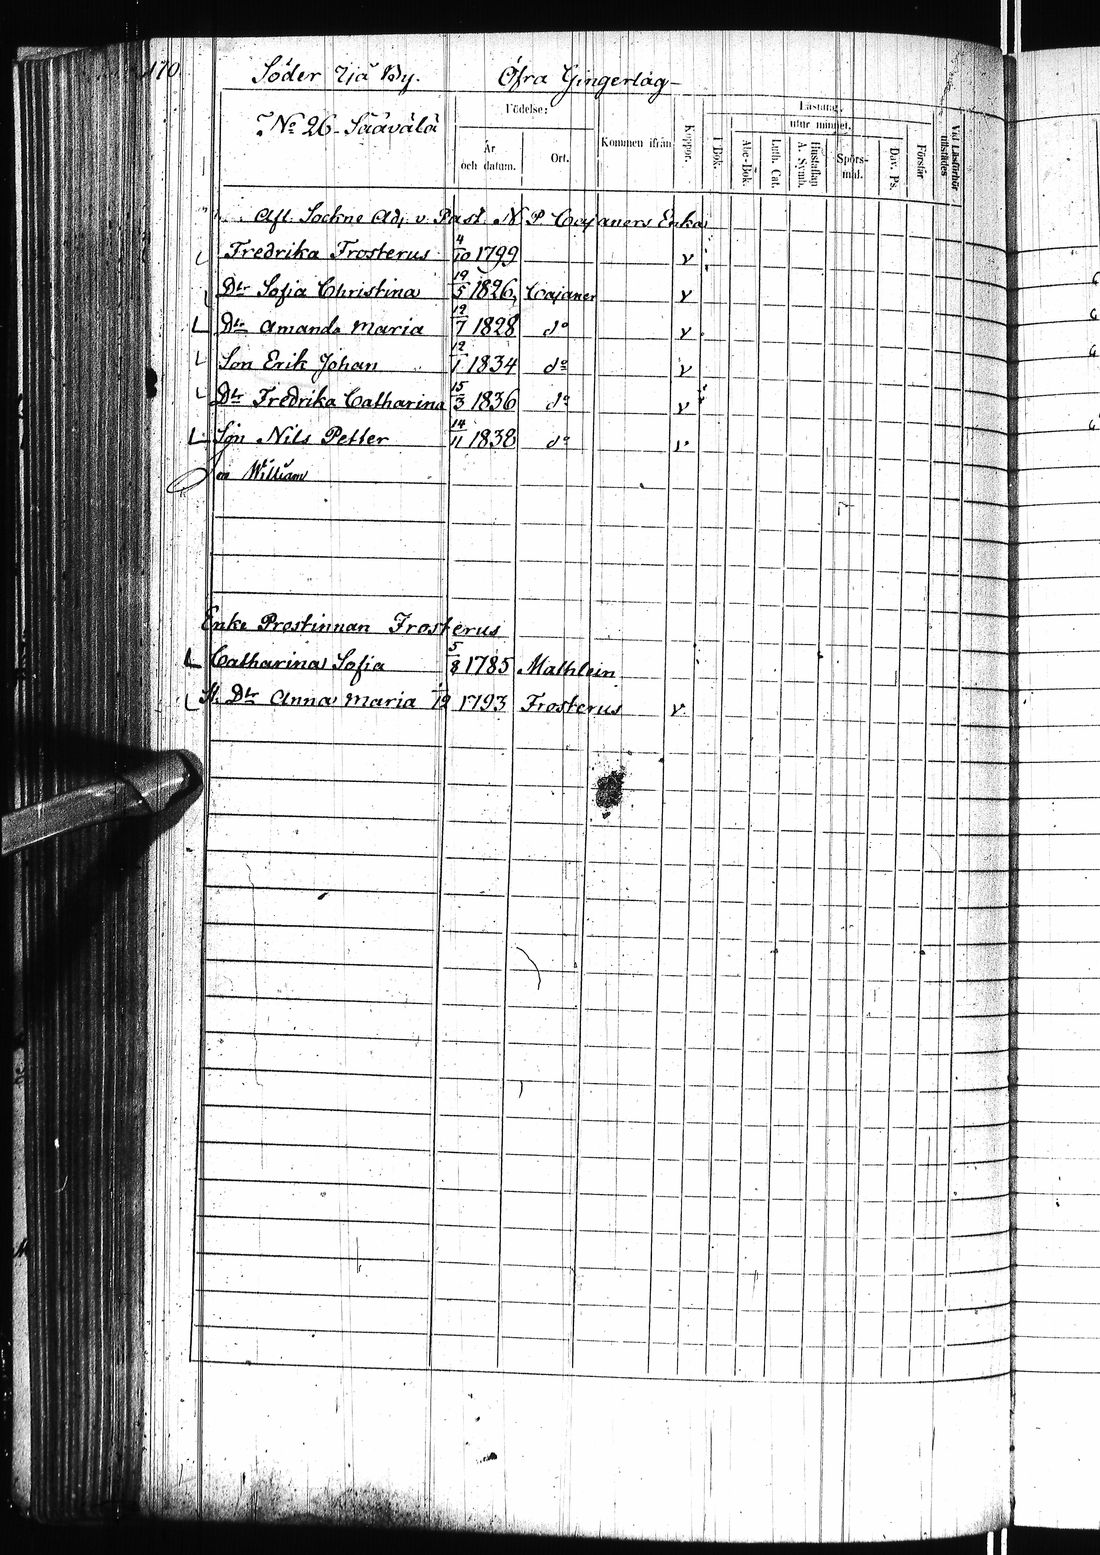 170.
Söder Ijå By. Öfra Gingerlag
No 26. Säävälä
Födelse:
År och datum.
Ort.
Kommen ifrån
Koppor.
Läsning,
utur minnet.
I Bok.
Abc-Bok.
Luth. Cat.
Hustaflan A. Symb.
Spörs-mål.
Dav. Ps.
Förstår
Vid Läsförhör tillstädes
Afl. Sockne Adj. v. Past. N. P. Cajaners Enka
Fredrika Frosterus 4/10 1799 v
Dtr Sofia Christina 19/5 1826 Cajaner v
Dtr Amanda Maria 12/7 1828 do v
Son Erik Johan 12/1 1834 do v
Dtr Fredrika Catharina 15/3 1836 do v
Son Nils Petter 14/11 1838 do v
William
Enke Prostinnan Frosterus
Catharina Sofia 5/8 1785 Mathlein
Dtr Anna Maria 1793 Frosterus v